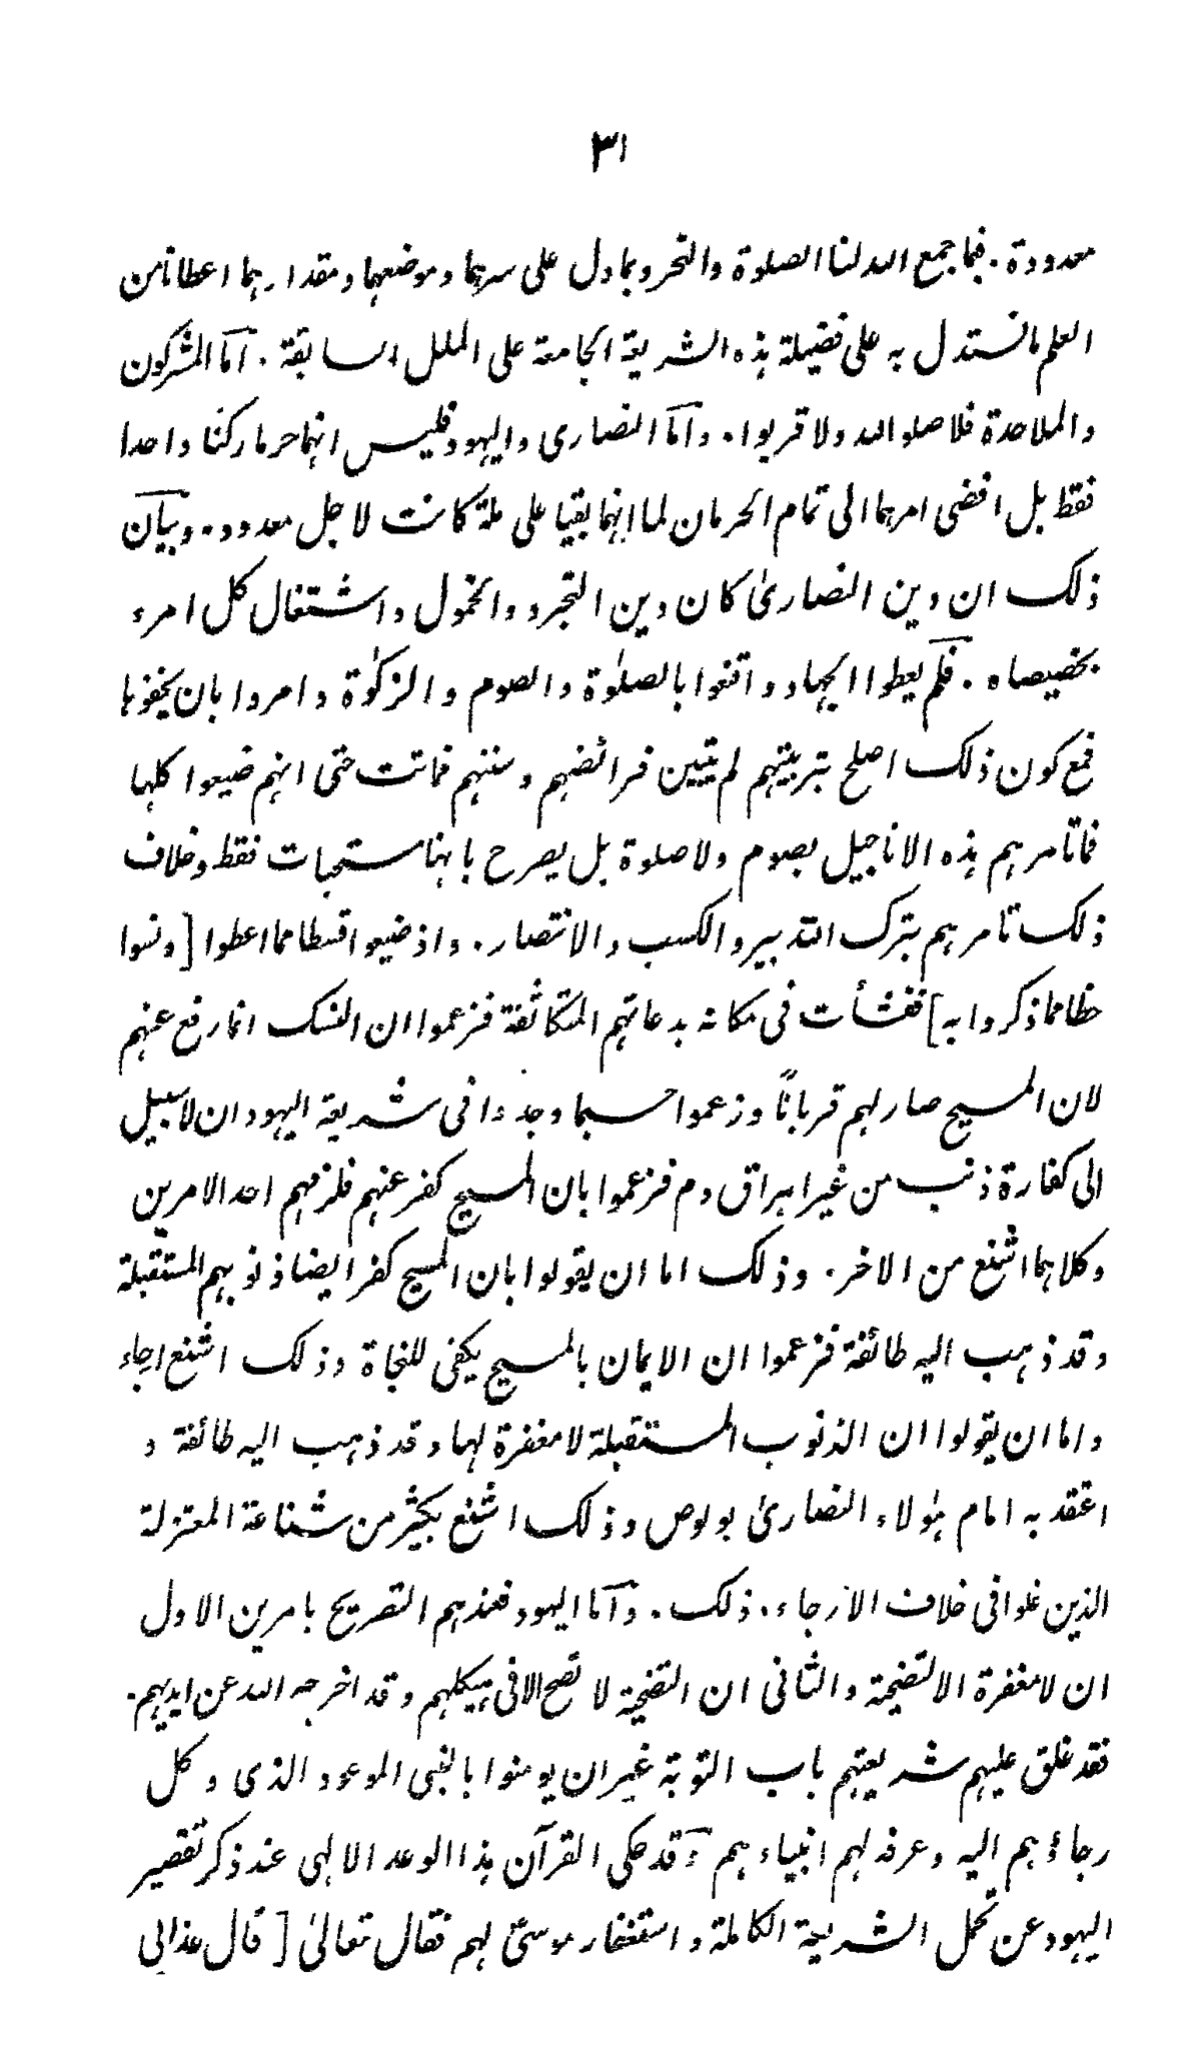 ٣١
معدودة. فبما جمع الله لنا الصلوة والنحر وبما دل على سرهما وموضعهما ومقدارهما اعطانا من
العلم ما نستدل به على فضيلة هذه الشريعة الجامعة على الملل السابقة. امّا المشركون
والملاحدة فلا صلوا لله ولا قربوا. وامّا النصارى واليهود فليس انهما حرما ركنا واحدا
فقط بل افضى امرهما الى تمام الحرمان لما انهما بقيا على ملة كانت لاجل معدود. وبيان
ذلك ان دين النصارىٰ كان دين التجرد والخمول واشتغال كل امرء
بخصيصاه. فلم يعطوا الجهاد واقنعوا بالصلوٰة والصوم والزكوٰة وامروا بان يخفوها
فمع كون ذلك اصلح بتربيتهم لم يتبين فرائضهم وسننهم فماتت حتى انهم ضيعوا كلها
فما تامرهم هذه الاناجيل بصوم ولا صلوة بل يصرح بانها مستحبات فقط وخلاف
ذلك تامرهم بترك التدبير والكسب والانتصار. واذ ضيعوا قسطا مما اعطوا [ونسوا
حظا مما ذكروا به] فنشأت فى مكانه بدعاتهم المتكاثفة فزعموا ان النسك انما رفع عنهم
لان المسيح صار لهم قرباناً وزعموا حسبما وجدوا فى شريعة اليهود ان لا سبيل
الى كفارة ذنب من غير اهراق دم فزعموا بان المسيح كفر عنهم فلزمهم احد الامرين
وكلاهما اشنع من الاخر. وذلك اما ان يقولوا بان المسيح كفر ايضا ذنوبهم المستقبلة
وقد ذهب اليه طائفة فزعموا ان الايمان بالمسيح يكفى للنجاة وذلك اشنع ارجاء
واما ان يقولوا ان الذنوب المستقبلة لا مغفرة لها وقد ذهب اليه طائفة و
اعتقد به امام هٰولاء النصارىٰ بولوص وذلك اشنع بكثير من شناعة المعتزلة
الذين غلوا فى خلاف الارجاء. ذلك. وامّا اليهود فعندهم التصريح بامرين الاول
ان لا مغفرة الا لتضحية والثانى ان التضحية لا تصح الا فى هيكلهم وقد اخرجه الله عن ايديهم.
فقد غلق عليهم شريعتهم باب التوبة غير ان يومنوا بالنبى الموعود الذى وكل
رجاؤهم اليه وعرفه لهم انبياءهم وَقد حكى القرآن هذا الوعد الالهى عند ذكر تقصير
اليهود عن تحمل الشريعة الكاملة واستغفار موسىٰ لهم فقال تعالىٰ [قال عذابى